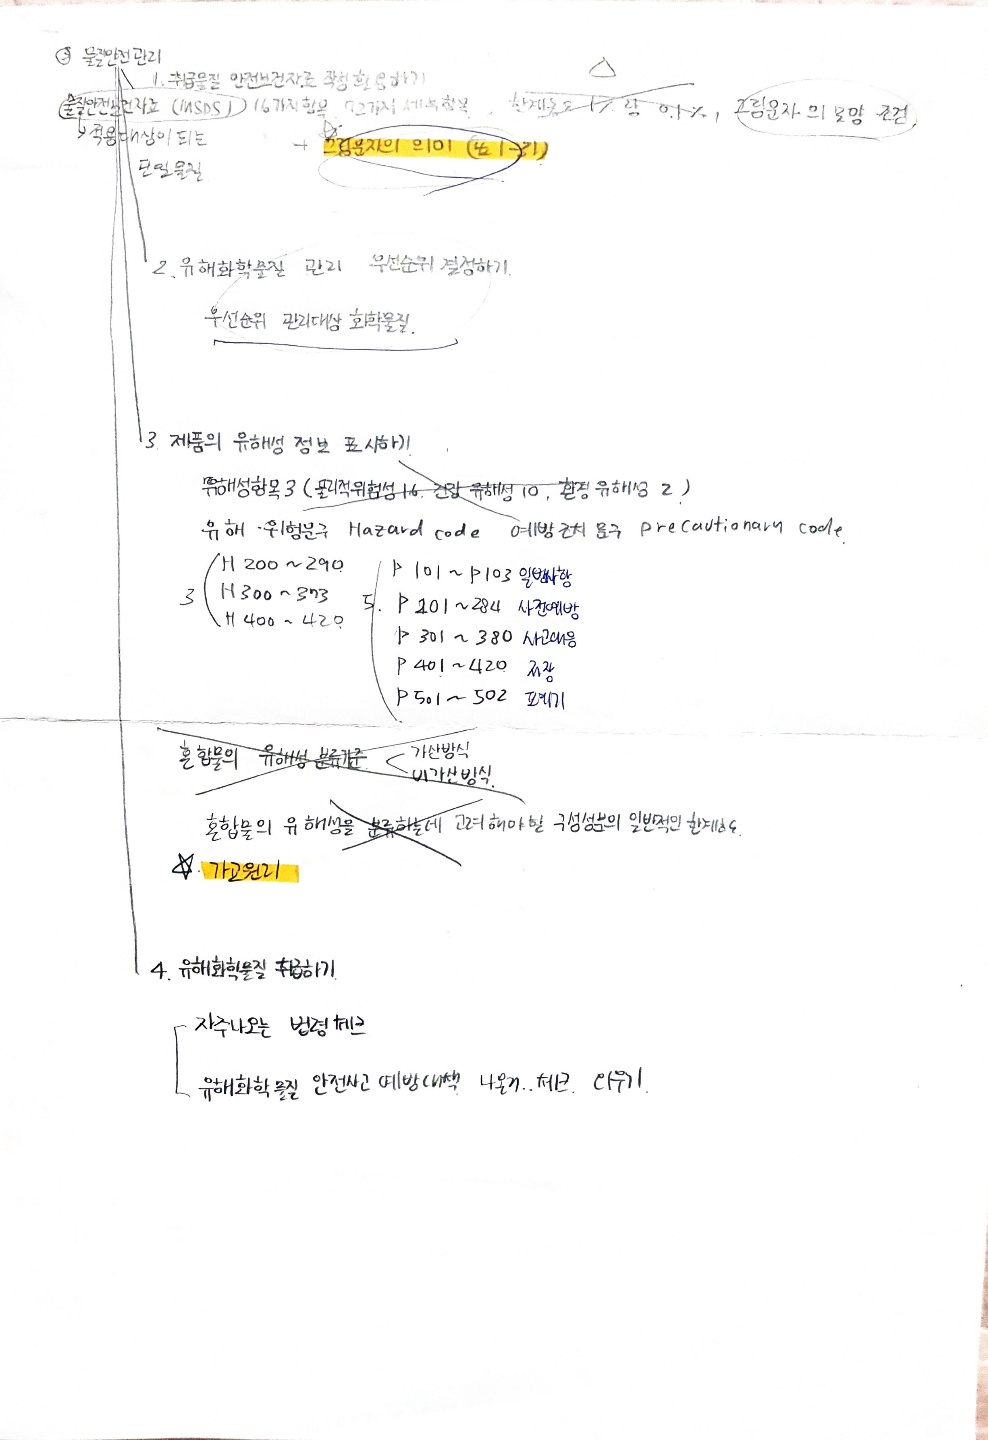 ③ 물질안전관리
1. 취급물질 안전보건자료 작성활용하기
물질안전보건자료 (MSDS) 16가지항목 72가지 세부항목, 한계농도 1% 랑 0.1%, 그림문자의 모양 조건
↳ 적용대상이 되는
단일물질
+ ☆ 그림문자의 의미 (표 1-21)
2. 유해화학물질 관리 우선순위 결정하기
우선순위 관리대상 화학물질.
3. 제품의 유해성 정보 표시하기
유해성항목 3 (물리적위험성 16. 건강 유해성 10, 환경유해성 2)
유해·위험문구 Hazard code 예방조치 문구 precautionary code.
3 H 200 ~ 290
H 300 ~ 373
H 400 ~ 420
5. P 101 ~ P103 일반사항
P 201 ~ 284 사전예방
P 301 ~ 380 사고대응
P 401 ~ 420 저장
P 501 ~ 502 폐기
혼합물의 유해성 분류기준 < 가산방식
비가산방식.
혼합물의 유해성을 분류하는데 고려해야할 구성성분의 일반적인 한계농도.
☆. 가교원리
4. 유해화학물질 취급하기
자주나오는 법령체크
유해화학물질 안전사고 예방대책 나올거.. 체크 외우기.